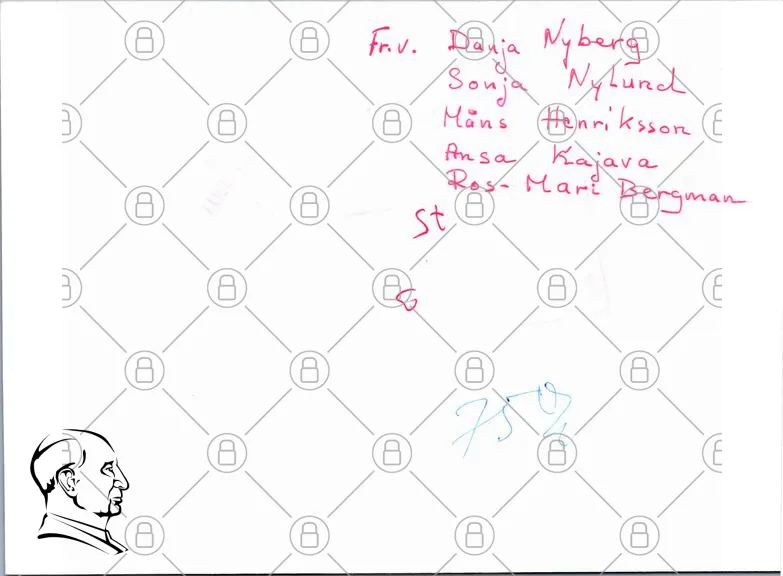 Fr.v. Danja Nyberg
Sonja Nylund
Måns Henriksson
Ansa Kajava
Ros-Mari Bergman
St
8
75%